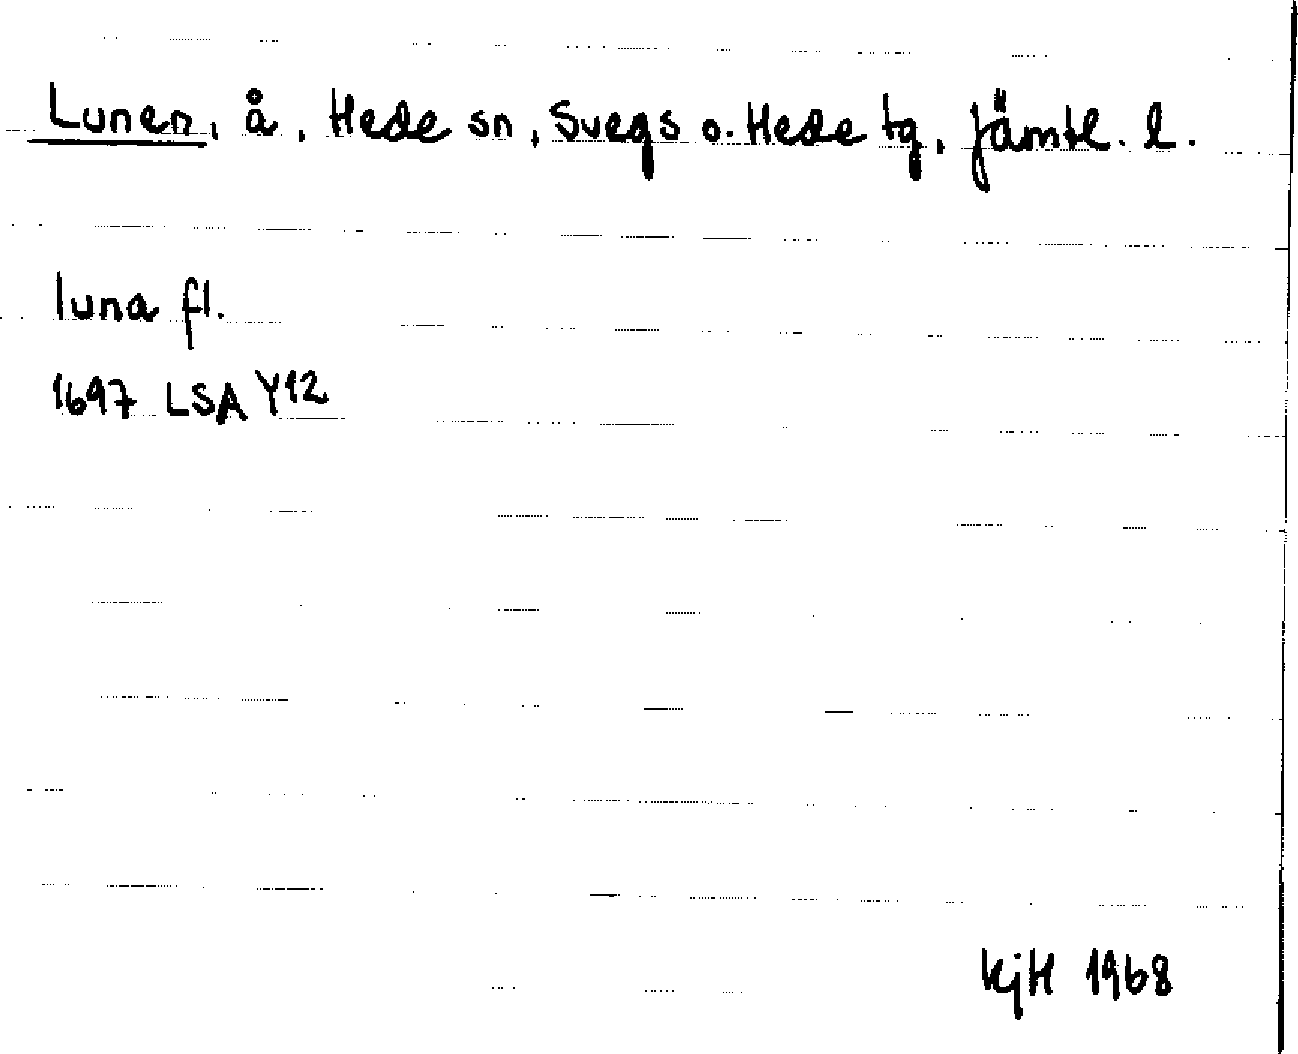 Lunen, å, Hede sn, Svegs o. Hede tg, Jämtl. l.
luna fl.
1697 LSA Y12
KjH 1968